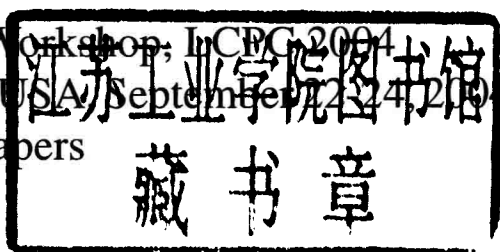 Workshop, LCPC 2004
USA, September 22-24, 2004
apers
江苏工业学院图书馆
藏书章